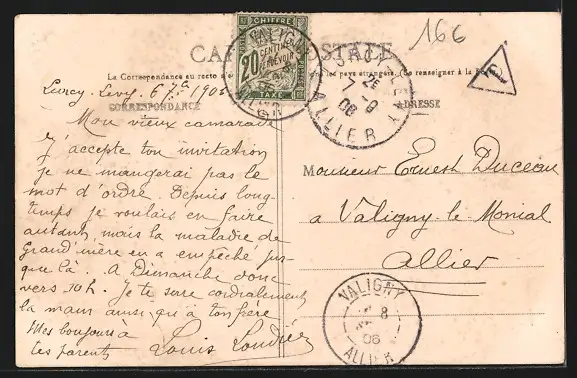 166
CA
STALE
La Correspondance au recto n'est
les pays étrangers. (Se renseigner à la
CORRESPONDANCE
ADRESSE
CHIFFRE
20
CENTIMES
À PERCEVOIR
TAXE
VALIGNY
ALLIER
7
06
ALLIER
T
Lurcy-Levy 6 7bre 190
Mon vieux camarade
J'accepte ton invitation
je ne mangerai pas le
mot d'ordre. Depuis long-
temps je voulais en faire
autant, mais la maladie de
Grand'mère en a empêché jus-
que là. A Dimanche donc
vers 10h. Je te serre cordialement
la main ainsi qu'à ton frère
Mes bonjours à
tes parents
Louis
Monsieur Ernest Duceau
a Valigny-le-Monial
Allier
VALIGNY
8
06
ALLIER